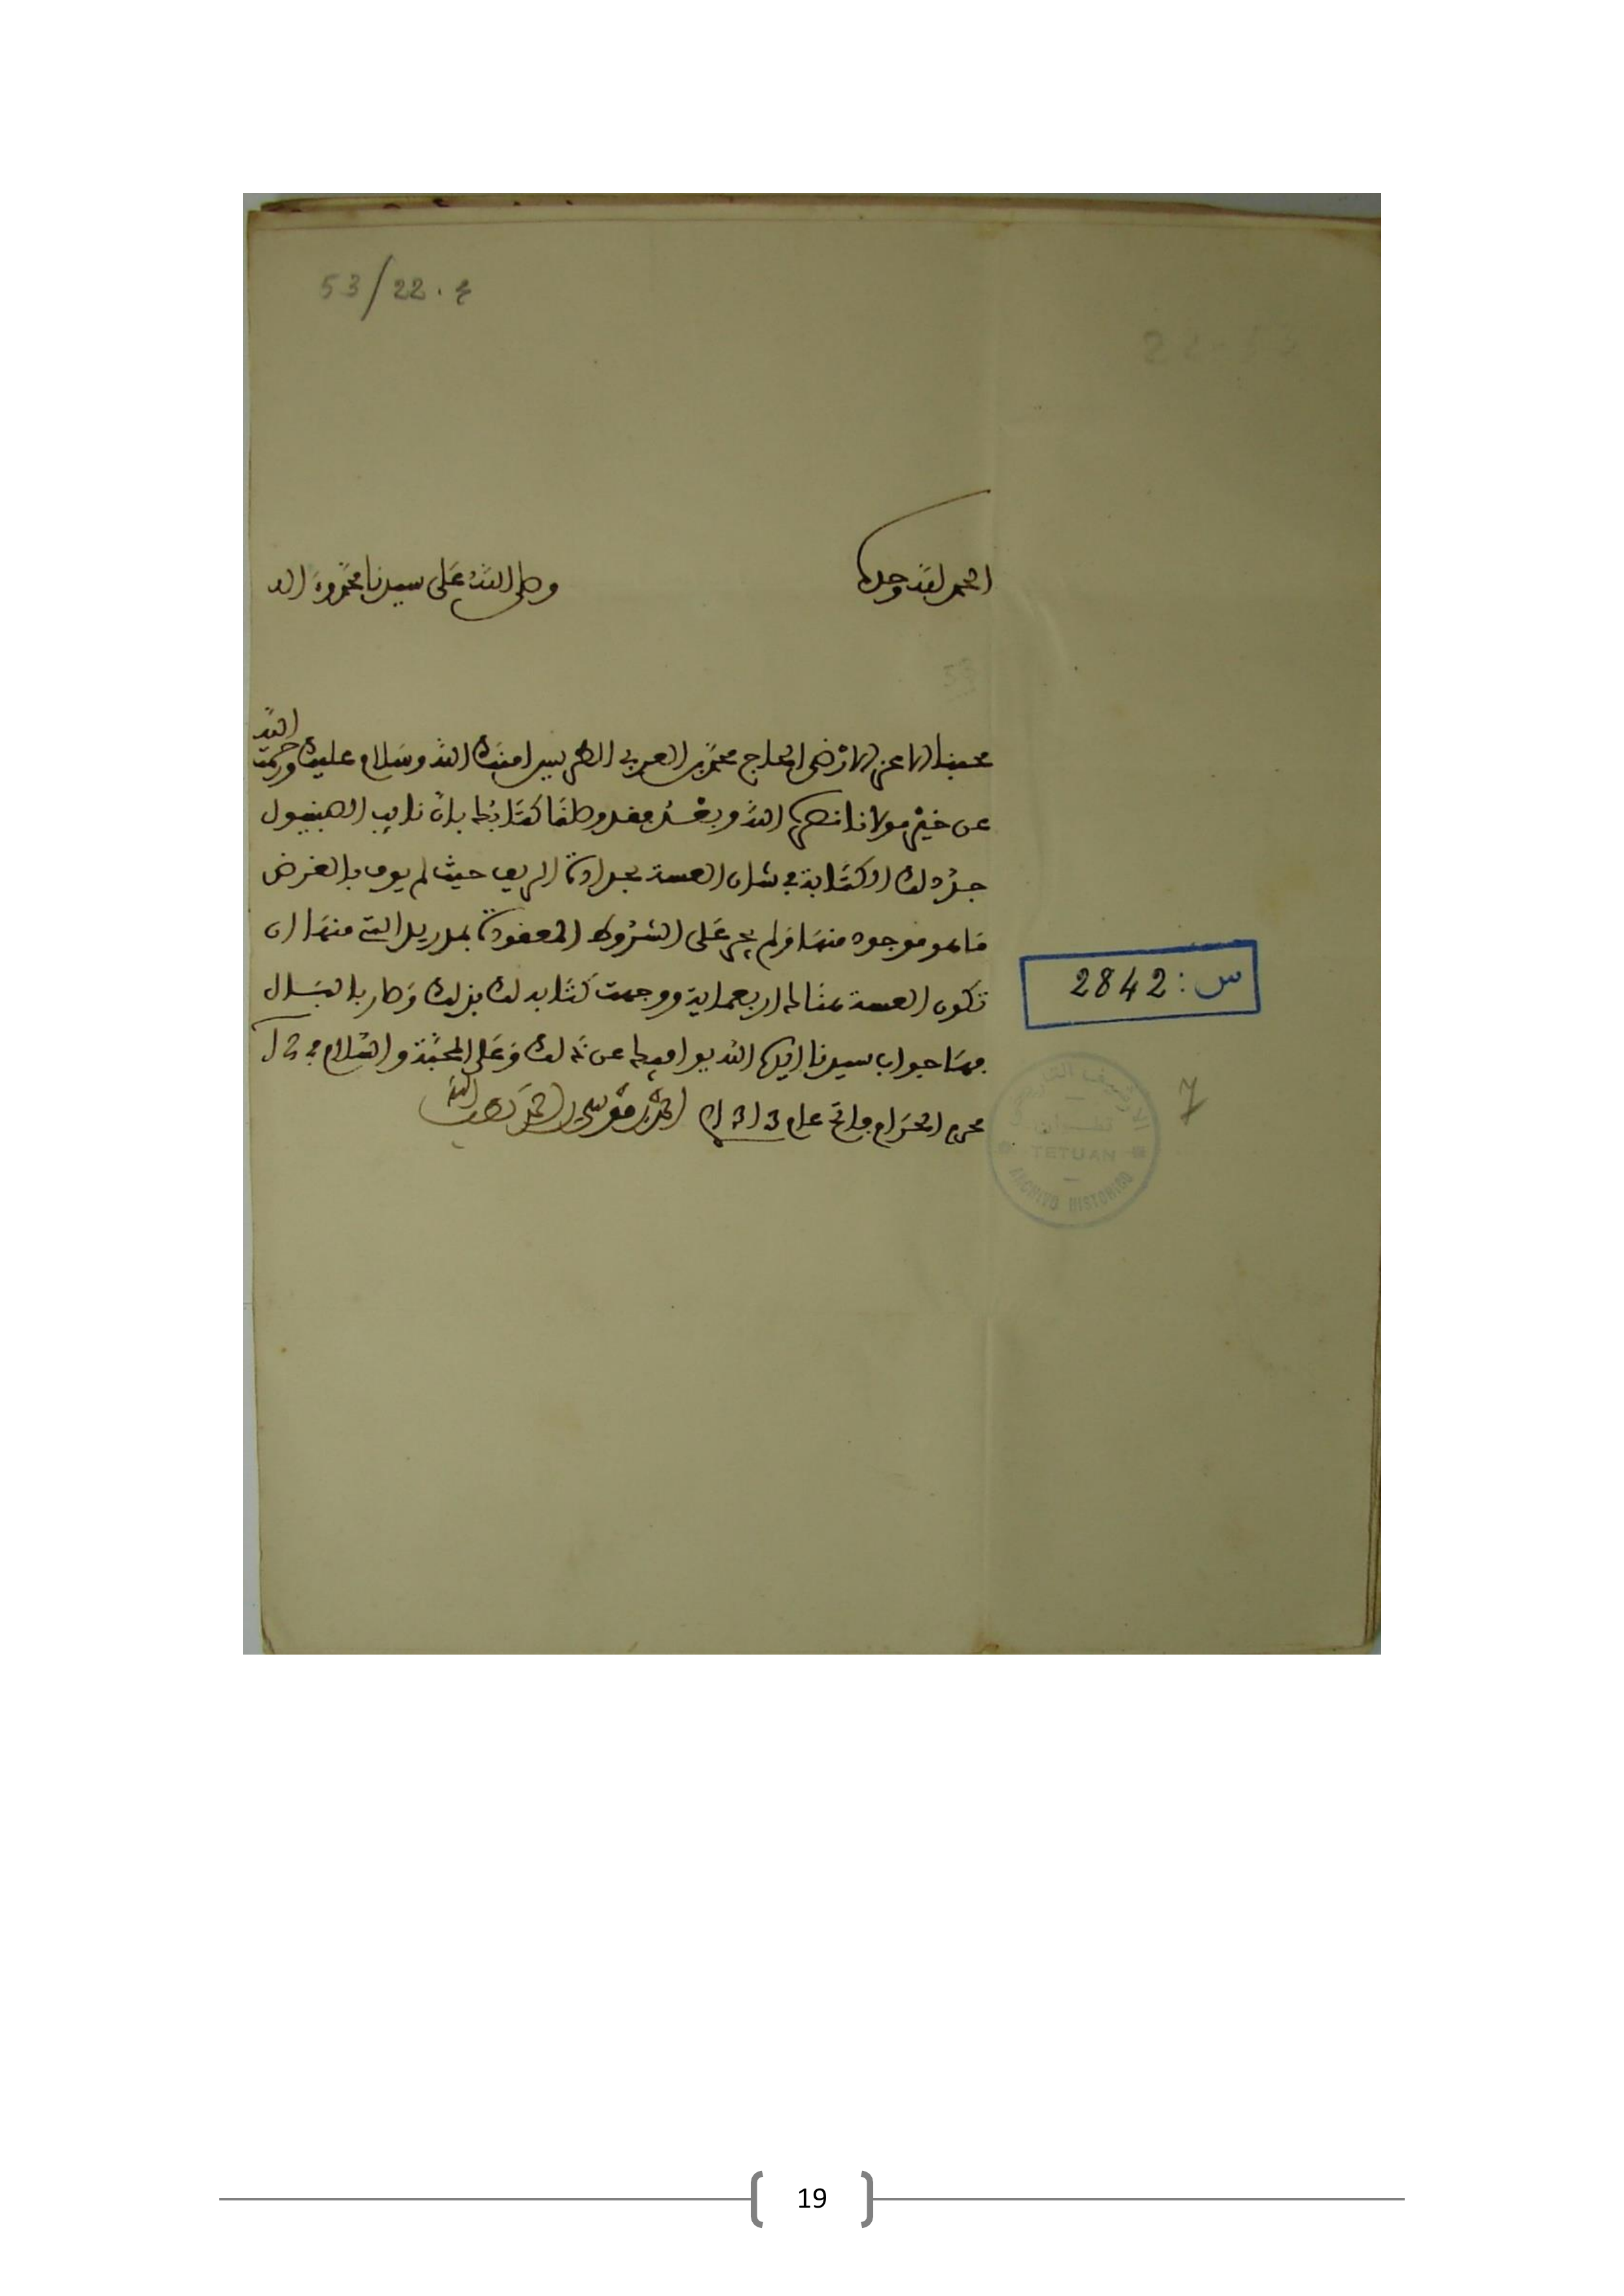 53/22. ع
الحمد لله وحده
وصلى الله على سيدنا محمد وءاله
محبنا الاعز الارضى الحاج محمد بن العربي الطريس امنك الله وسلام عليك ورحمت الله
عن خير مولانا نصره الله وبعد فقد وصلنا كتابك بان نايب الصبنيول
جدد لك الكتابة في شان العسة بحدادة الريف حيث لم يوف بالغرض
ما هو موجود منها ولم يجر على الشروط المعقودة بمدريد التي منها ان
تكون العسة هنالك اربعماية ووجهت كتابه لك بذلك وصار بالبال
فها جواب سيدنا ايده الله يوافيك عن ذلك وعلى المحبة والسلام في 2
محرم الحرام فاتح عام 1313 احمد بن موسى بن احمد لطف الله
س: 2842
الارشيف التاريخي
تطوان
TETUAN
ARCHIVO HISTORICO
7
19